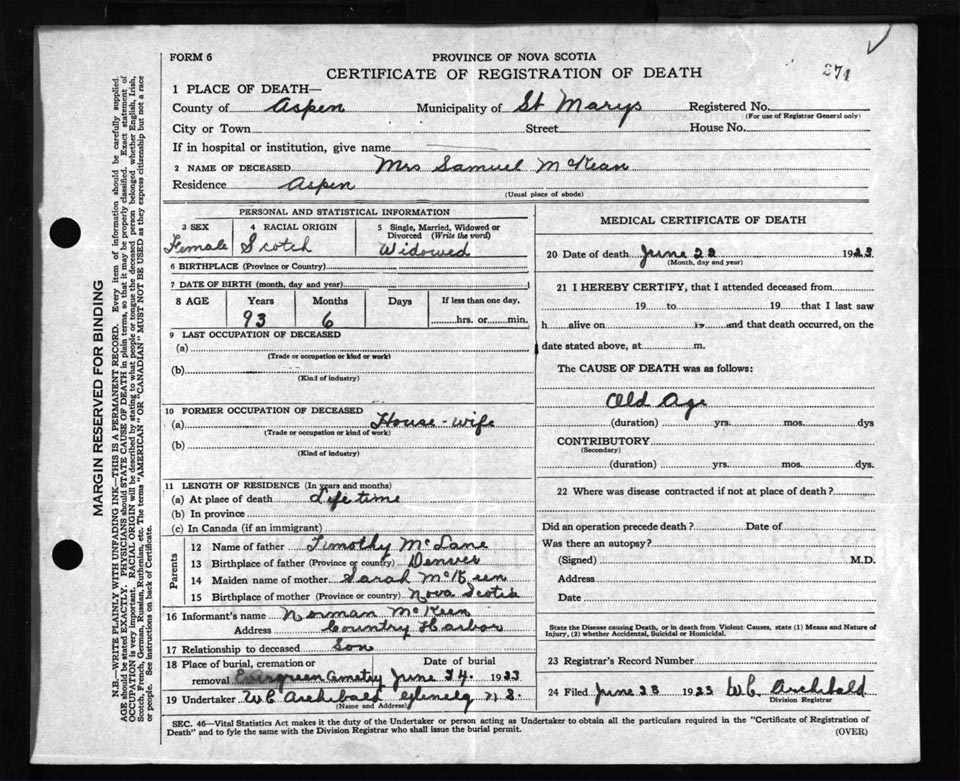 FORM 6
PROVINCE OF NOVA SCOTIA
CERTIFICATE OF REGISTRATION OF DEATH
274
1 PLACE OF DEATH—
County of Aspen Municipality of St Marys Registered No.
(For use of Registrar General only)
City or Town Street House No.
If in hospital or institution, give name
2 NAME OF DECEASED Mrs Samuel McKean
Residence Aspen
(Usual place of abode)
PERSONAL AND STATISTICAL INFORMATION
3 SEX 4 RACIAL ORIGIN 5 Single, Married, Widowed or Divorced (Write the word)
Female Scotch Widowed
6 BIRTHPLACE (Province or Country)
7 DATE OF BIRTH (month, day and year)
8 AGE Years Months Days If less than one day,
93 6 hrs. or min.
9 LAST OCCUPATION OF DECEASED
(a)
(Trade or occupation or kind or work)
(b)
(Kind of industry)
10 FORMER OCCUPATION OF DECEASED
(a) House-wife
(Trade or occupation or kind of work)
(b)
(Kind of industry)
11 LENGTH OF RESIDENCE (In years and months)
(a) At place of death Life time
(b) In province
(c) In Canada (if an immigrant)
Parents
12 Name of father Timothy McLane
13 Birthplace of father (Province or country) Denver
14 Maiden name of mother Sarah McKeen
15 Birthplace of mother (Province or country) Nova Scotia
16 Informant's name Norman McKeen
Address Country Harbor
17 Relationship to deceased Son
18 Place of burial, cremation or Date of burial
removal Evergreen Cemetry June 24. 1923
19 Undertaker W C Archibald Glenelg N S.
(Name and Address)
MEDICAL CERTIFICATE OF DEATH
20 Date of death June 22 1923
(Month, day and year)
21 I HEREBY CERTIFY, that I attended deceased from
19 to 19 that I last saw
h alive on 19 and that death occurred, on the
date stated above, at m.
The CAUSE OF DEATH was as follows:
Old Age
(duration) yrs. mos. dys
CONTRIBUTORY
(Secondary)
(duration) yrs. mos. dys.
22 Where was disease contracted if not at place of death?
Did an operation precede death? Date of
Was there an autopsy?
(Signed) M.D.
Address
Date
State the Disease causing Death, or in death from Violent Causes, state (1) Means and Nature of
Injury, (2) whether Accidental, Suicidal or Homicidal.
23 Registrar's Record Number
24 Filed June 23 1923 W.C. Archibald
Division Registrar
SEC. 46—Vital Statistics Act makes it the duty of the Undertaker or person acting as Undertaker to obtain all the particulars required in the "Certificate of Registration of
Death" and to fyle the same with the Division Registrar who shall issue the burial permit.
(OVER)
MARGIN RESERVED FOR BINDING
N.B.—WRITE PLAINLY WITH UNFADING INK—THIS IS A PERMANENT RECORD. Every item of information should be carefully supplied.
AGE should be stated EXACTLY. PHYSICIANS should STATE CAUSE OF DEATH in plain terms, so that it may be properly classified. Exact statement of
OCCUPATION is very important. RACIAL ORIGIN will be described by stating to what people or tongue the deceased person belonged whether English, Irish,
Scotch, French, German, Russian, Ruthenian, etc. The terms "AMERICAN" OR "CANADIAN" MUST NOT BE USED as they express citizenship but not a race
or people. See instructions on back of Certificate.